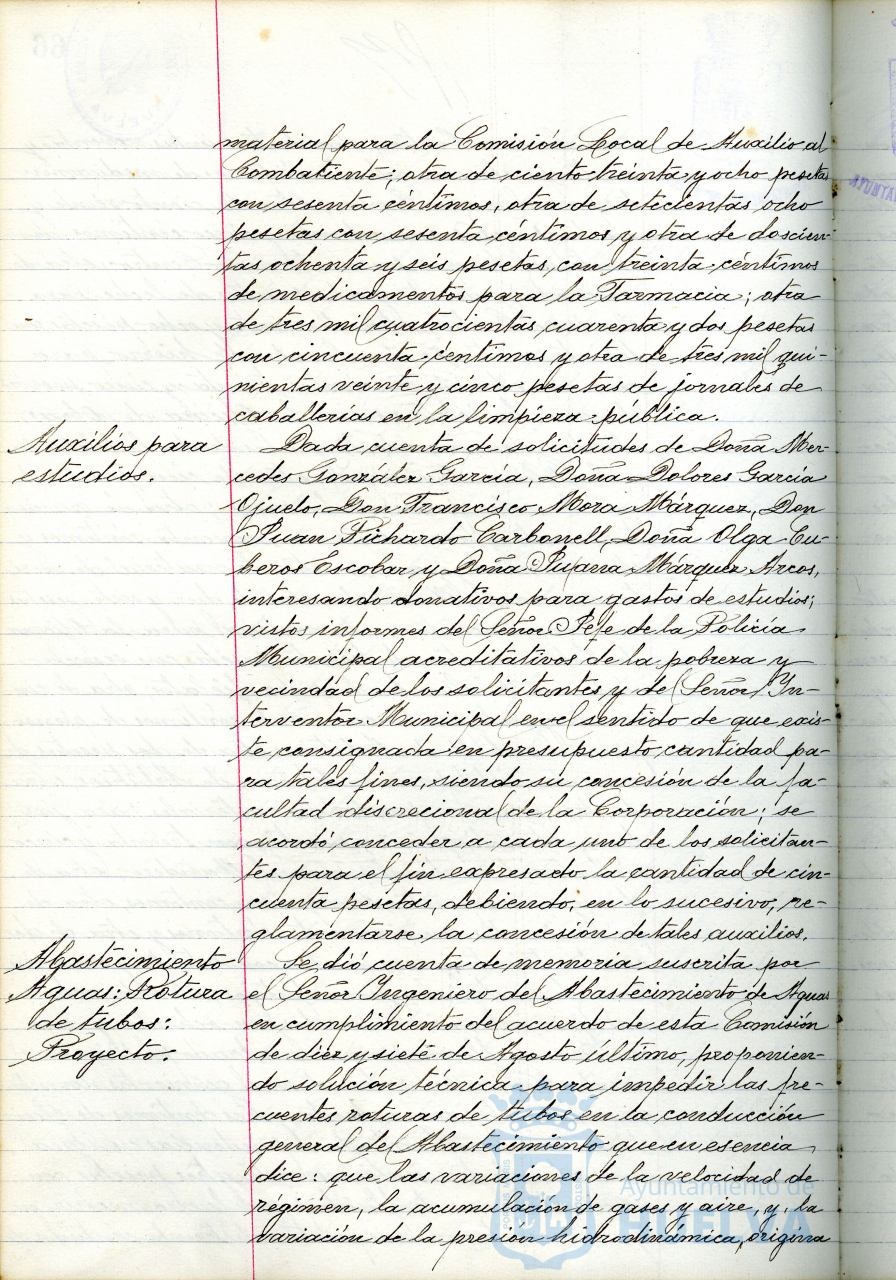 material para la Comisión Local de Auxilio al
Combatiente; otra de ciento treinta y ocho pesetas
con sesenta céntimos, otra de setecientas ocho
pesetas con sesenta céntimos y otra de doscien-
tas ochenta y seis pesetas con treinta céntimos
de medicamentos para la Farmacia; otra
de tres mil cuatrocientas cuarenta y dos pesetas
con cincuenta céntimos y otra de tres mil qui-
nientas veinte y cinco pesetas de jornales de
caballerías en la limpieza pública.
Auxilios para
estudios.
Dada cuenta de solicitudes de Doña Mer-
cedes González García, Doña Dolores García
Ojuelo, Don Francisco Mora Márquez, Don
Juan Pichardo Carbonell, Doña Olga Cu-
beros Escobar y Doña Juana Márquez Arcos,
interesando donativos para gastos de estudios;
vistos informes del Señor Jefe de la Policía
Municipal acreditativos de la pobreza y
vecindad de los solicitantes y del Señor In-
terventor Municipal en el sentido de que exis-
te consignada en presupuesto cantidad pa-
ra tales fines, siendo su concesión de la fa-
cultad discrecional de la Corporación; se
acordó conceder a cada uno de los solicitan-
tes para el fin expresado la cantidad de cin-
cuenta pesetas, debiendo, en lo sucesivo, re-
glamentarse la concesión de tales auxilios.
Abastecimiento
Aguas: Rotura
de tubos:
Proyecto.
Se dió cuenta de memoria suscrita por
el Señor Ingeniero del Abastecimiento de Aguas
en cumplimiento del acuerdo de esta Comisión
de diez y siete de Agosto último, proponien-
do solución técnica para impedir las fre-
cuentes roturas de tubos en la conducción
general del Abastecimiento que en esencia
dice: que las variaciones de la velocidad de
régimen, la acumulación de gases y aire, y, la
variación de la presión hidrodinámica, origina
Ayuntamiento de
HUELVA